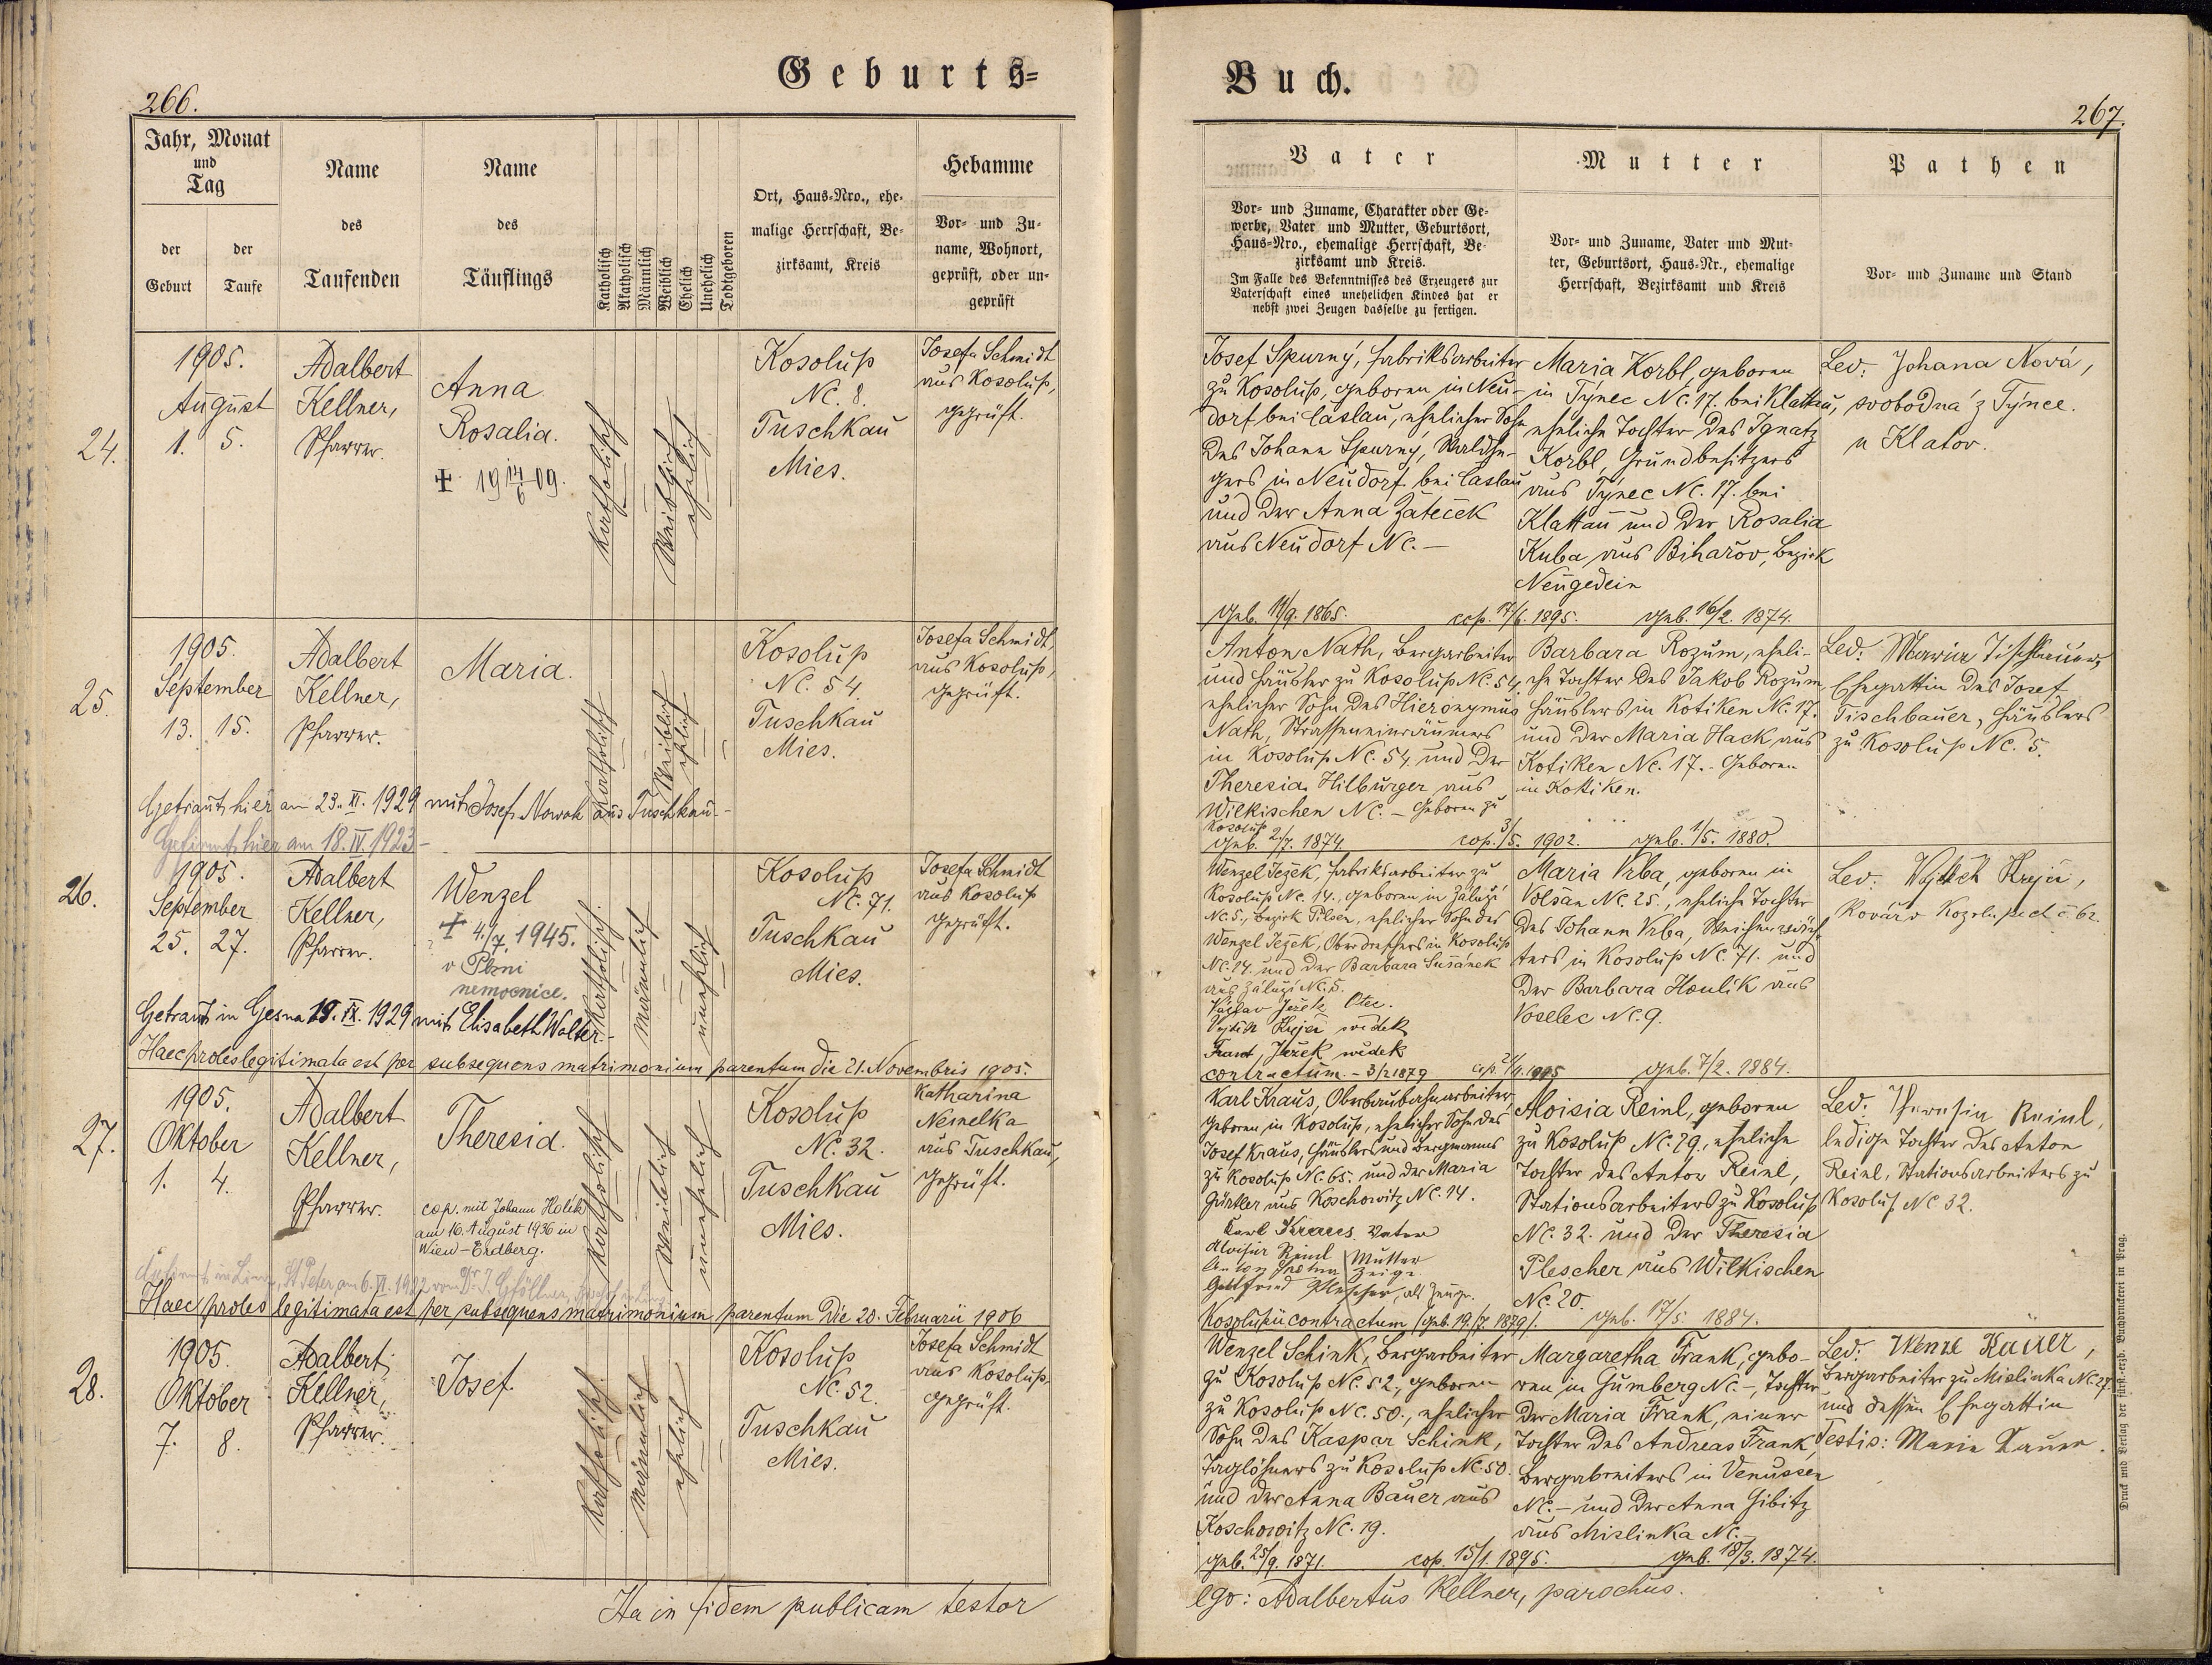 Geburts=
266.
Jahr, Monat
und
Tag
der
Geburt
der
Taufe
Name
des
Taufenden
Name
des
Täuflings
Katholisch
Akatholisch
Männlich
Weiblich
Ehelich
Unehelich
Todtgeboren
Ort, Haus=Nro., ehe=
malige Herrschaft, Be=
zirksamt, Kreis
Hebamme
Vor= und Zu=
name, Wohnort,
geprüft, oder un=
geprüft
24.
1905.
August
1. 5.
Adalbert
Kellner,
Pfarrer.
Anna
Rosalia.
✝ 19 17/6 09.
Katholisch
Weiblich
ehelich
Kosolup
Nc. 8.
Tuschkau
Mies.
Josefa Schmidt
aus Kosolup,
geprüft.
25.
1905.
September
13. 15.
Adalbert
Kellner,
Pfarrer.
Maria.
Katholisch
Weiblich
ehelich
Kosolup
Nc. 54.
Tuschkau
Mies.
Josefa Schmidt,
aus Kosolup,
geprüft.
Getraut hier am 23. XI. 1929 mit Josef Nowak aus Tuschkau.-
Gefirmt hier am 18. IV. 1923-
26.
1905.
September
25. 27.
Adalbert
Kellner,
Pfarrer.
Wenzel
✝ 4./7. 1945.
v Plzni
nemocnice.
Katholisch
Männlich
unehelich
Kosolup
Nc. 71.
Tuschkau
Mies.
Josefa Schmidt
aus Kosolup
geprüft.
Getraut in Gesna 19. IX. 1929 mit Elisabeth Walter.-
Haec proles legitimata est per subsequens matrimonium parentum die 21. Novembris 1905.
27.
1905.
Oktober
1. 4.
Adalbert
Kellner,
Pfarrer.
Theresia.
cop. mit Johann Holek
am 16. August 1936 in
Wien-Erdberg.
Katholisch
Weiblich
unehelich
Kosolup
Nc. 32.
Tuschkau
Mies.
Katharina
Nemelka
aus Tuschkau,
geprüft.
Gefirmt in Linz, St Peter am 6. VI. 1922 von Dr. J. Gföllner,
Haec proles legitimata est per subsequens matrimonium parentum die 20. Februarii 1906
28.
1905.
Oktober
7. 8.
Adalbert
Kellner,
Pfarrer.
Josef.
Katholisch
männlich
ehelich
Kosolup
Nc. 52.
Tuschkau
Mies.
Josefa Schmidt
aus Kosolup,
geprüft.
Ita in fidem publicam testor
Buch.
267.
Vater
Vor= und Zuname, Charakter oder Ge=
werbe, Vater und Mutter, Geburtsort,
Haus=Nro., ehemalige Herrschaft, Be=
zirksamt und Kreis.
Im Falle des Bekenntnisses des Erzeugers zur
Vaterschaft eines unehelichen Kindes hat er
nebst zwei Zeugen dasselbe zu fertigen.
Mutter
Vor= und Zuname, Vater und Mut=
ter, Geburtsort, Haus=Nr., ehemalige
Herrschaft, Bezirksamt und Kreis
Pathen
Vor= und Zuname und Stand
Josef Spurný, Fabriksarbeiter
zu Kosolup, geboren in Neu-
dorf bei Caslau, ehelicher Sohn
des Johann Spurný, Waldhe-
gers in Neudorf bei Caslau
und der Anna Zateček
aus Neudorf Nc. —
geb. 11/9. 1865. cop. 17/6. 1895.
Maria Korbl, geboren
in Týnec Nc. 17. bei Klattau,
eheliche Tochter des Ignatz
Korbl, Grundbesitzers
aus Týnec Nc. 17. bei
Klattau und der Rosalia
Kuba aus Biharov, Bezirk
Neugedein
geb. 16/2. 1874.
Lev: Johana Nová,
svobodná z Týnce.
u Klatov.
Anton Nath, Bergarbeiter
und Häusler zu Kosolup Nc. 54,
ehelicher Sohn des Hieronymus
Nath, Strasseneinräumers
in Kosolup Nc. 54 und der
Theresia Hilburger aus
Wilkischen Nc. — Geboren zu
Kosolup
geb. 2/7. 1874. cop. 3/5. 1902.
Barbara Rozum, eheli-
che Tochter des Jakob Rozum
Häuslers in Kotiken Nc. 17.
und der Maria Hack aus
Kotiken Nc. 17.- Geboren
in Kottiken.
geb. 1/5. 1880.
Lev: Maria Tischbauer,
Ehegattin des Josef
Tischbauer, Häuslers
zu Kosolup Nc. 5.
Wenzel Ježek, Fabriksarbeiter zu
Kosolup Nc. 14., geboren in Záluží
Nc. 5., Bezirk Pilsen, ehelicher Sohn des
Wenzel Ježek, Oberdreschers in Kosolup
Nc. 14. und der Barbara Sušánek
aus Záluží Nc. 5.
Václav Ježek Otec.
Vojtěch Krejčí svědek
Frant, Ježek svědek
contractum. - 3/2 1879 cop. 21/11. 1905
Maria Vrba, geboren in
Volšan Nc. 25., eheliche Tochter
des Johann Vrba, Weichenwäch-
ters in Kosolup Nc. 71. und
der Barbara Houlík aus
Voselec Nc. 9.
geb. 7/2. 1884.
Lev: Vojtěch Krejčí,
Kovář v Kozolupech č 62.
Karl Kraus, Oberbaubahnarbeiter
geboren in Kosolup, ehelicher Sohn des
Josef Kraus, Häuslers und Bergmanns
zu Kosolup Nc. 65. und der Maria
Gürtler aus Koschowitz Nc. 14.
Karl Kraus, Vater
Aloisia Reinl Mutter
Zeuge
Gottfried Plescher, als Zeuge.
Kosolupii contractum (geb. 19./7. 1879).
Aloisia Reinl, geboren
zu Kosolup Nc. 29., eheliche
Tochter des Anton Reinl,
Stationsarbeiters zu Kosolup
Nc. 32. und der Theresia
Plescher aus Wilkischen
Nc. 20.
geb. 17/5. 1884.
Lev: Theresia Reinl,
ledige Tochter des Anton
Reinl, Stationsarbeiters zu
Kosolup Nc 32.
Wenzel Schink, Bergarbeiter
zu Kosolup Nc. 52., geboren
zu Kosolup Nc. 50., ehelicher
Sohn des Kaspar Schink,
Taglöhners zu Kosolup Nc. 50.
und der Anna Bauer aus
Koschowitz Nc. 19.
geb. 25/9. 1871. cop. 15/1. 1895.
Margaretha Frank, gebo-
ren in Gumberg Nc. —, Tochter
der Maria Frank, einer
Tochter des Andreas Frank,
Bergarbeiters in Venussen
Nc. — und der Anna Gibitz
aus Mislinka Nc. —
geb. 18/3. 1874.
Lev: Wenzl Lauer,
Bergarbeiter zu Mislinka Nc. 27.
und dessen Ehegattin
Testis: Maria Lauer.
ego: Adalbertus Kellner, parochus.
Druck und Verlag der fürst-erzb. Buchdruckerei in Prag.